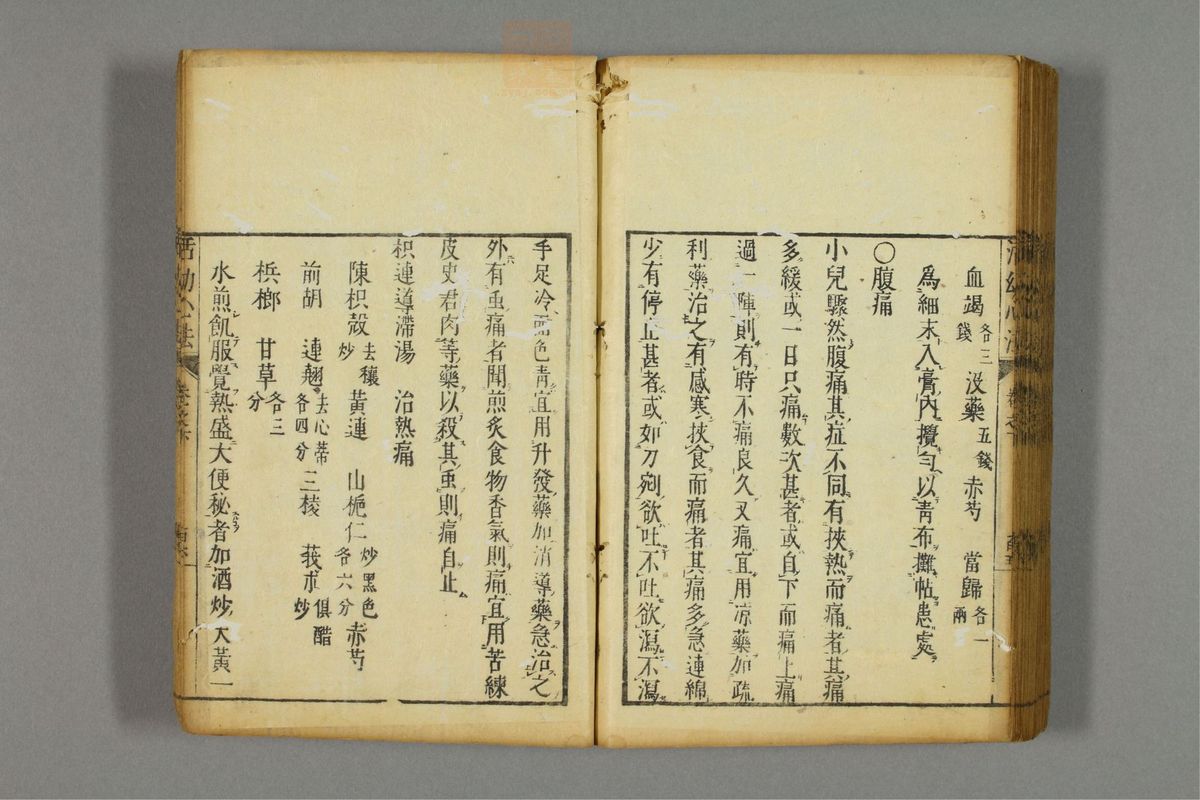 血竭各三錢 沒藥五錢 赤芍 當歸各一兩
爲細末入膏內攪勻以青布攤帖患處
〇腹痛
小兒驟然腹痛其症不同有挾熱而痛者其痛
多緩或一日只痛數次甚者或自下而痛上痛
過一陣則有時不痛良久又痛宜用凉藥加疏
利藥治之有感寒挾食而痛者其痛多急連綿
少有停止甚者或如刀剜欲吐不吐欲瀉不瀉
手足冷而色青宜用升發藥加消導藥急治之
外有䖝痛者聞煎炙食物香氣則痛宜用苦練
皮史君肉等藥以殺其䖝則痛自止
枳連導滯湯 治熱痛
陳枳殼去穰炒 黃連 山梔仁炒黑色各六分 赤芍
前胡 連翹去心蒂各四分 三棱 莪朮俱醋炒
梹榔 甘草各三分
水煎飢服覺熱盛大便秘者加酒炒大黃一
活幼心法